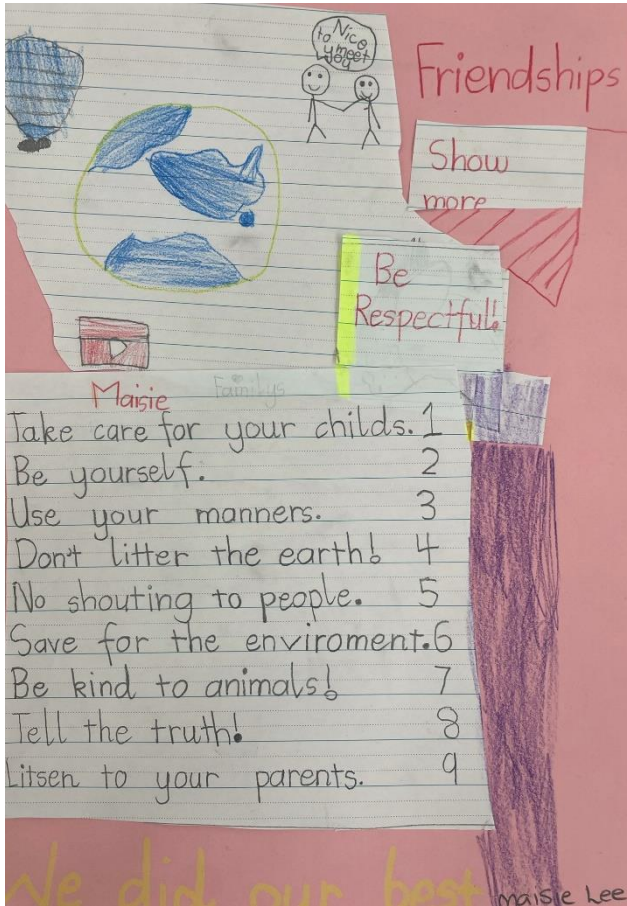 Nice
to meet
you
Friendships
Show
more
Be
Respectful!
Maisie Familys
Take care for your childs. 1
Be yourself. 2
Use your manners. 3
Don't litter the earth! 4
No shouting to people. 5
Save for the enviroment. 6
Be kind to animals! 7
Tell the truth! 8
Litsen to your parents. 9
We did our best maisie Lee